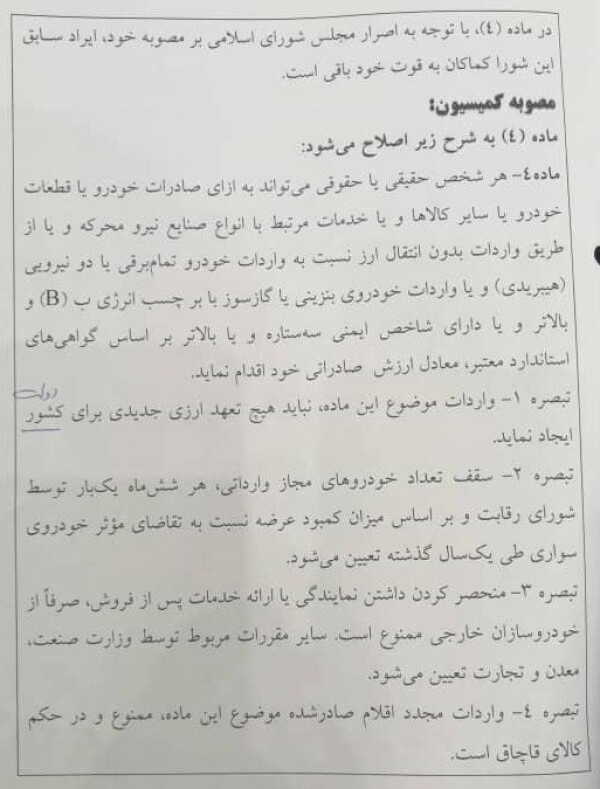 در ماده (٤)، با توجه به اصرار مجلس شورای اسلامی بر مصوبه خود، ایراد سابق
این شورا کماکان به قوت خود باقی است.
مصوبه کمیسیون:
ماده (٤) به شرح زیر اصلاح می‌شود:
ماده٤- هر شخص حقیقی یا حقوقی می‌تواند به ازای صادرات خودرو یا قطعات
خودرو یا سایر کالاها و یا خدمات مرتبط با انواع صنایع نیرو محرکه و یا از
طریق واردات بدون انتقال ارز نسبت به واردات خودرو تمام‌برقی یا دو نیرویی
(هیبریدی) و یا واردات خودروی بنزینی یا گازسوز با بر چسب انرژی ب (B) و
بالاتر و یا دارای شاخص ایمنی سه‌ستاره و یا بالاتر بر اساس گواهی‌های
استاندارد معتبر، معادل ارزش صادراتی خود اقدام نماید.
دولت
تبصره ۱- واردات موضوع این ماده، نباید هیچ تعهد ارزی جدیدی برای کشور
ایجاد نماید.
تبصره ۲- سقف تعداد خودروهای مجاز وارداتی، هر شش‌ماه یک‌بار توسط
شورای رقابت و بر اساس میزان کمبود عرضه نسبت به تقاضای مؤثر خودروی
سواری طی یک‌سال گذشته تعیین می‌شود.
تبصره ۳- منحصر کردن داشتن نمایندگی یا ارائه خدمات پس از فروش، صرفاً از
خودروسازان خارجی ممنوع است. سایر مقررات مربوط توسط وزارت صنعت،
معدن و تجارت تعیین می‌شود.
تبصره ٤- واردات مجدد اقلام صادرشده موضوع این ماده، ممنوع و در حکم
کالای قاچاق است.